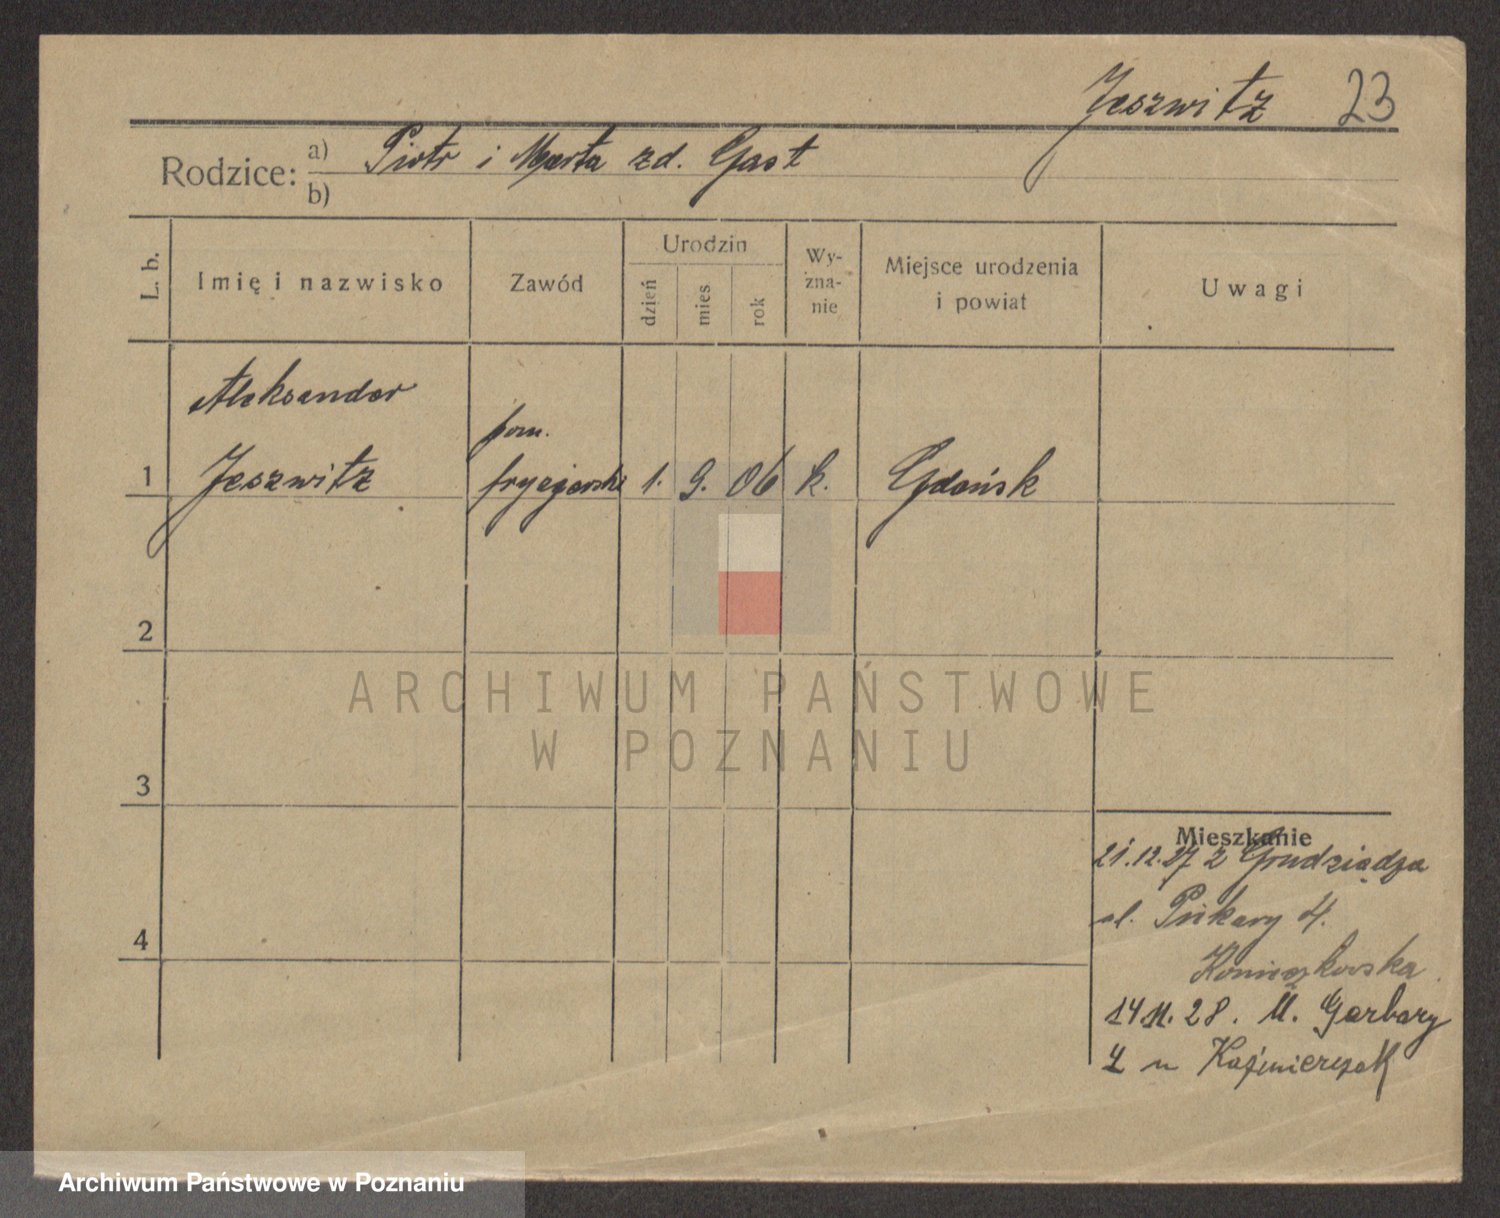 Jeszwitz 23
Rodzice: a) Piotr i Marta zd. Gast
b)
L. b. Imię i nazwisko Zawód Urodzin dzień mies rok Wy-zna-nie Miejsce urodzenia i powiat Uwagi
Aleksander
pom.
1 Jeszwitz fryzjerski 1. 9. 06 k. Gdańsk
2
ARCHIWUM PAŃSTWOWE
W POZNANIU
3
Mieszkanie
21.12.27 z Grudziądza
ul. Piekary 4.
4
14 11. 28. M. Garbary
4 u Kaźmierczak
Archiwum Państwowe w Poznaniu